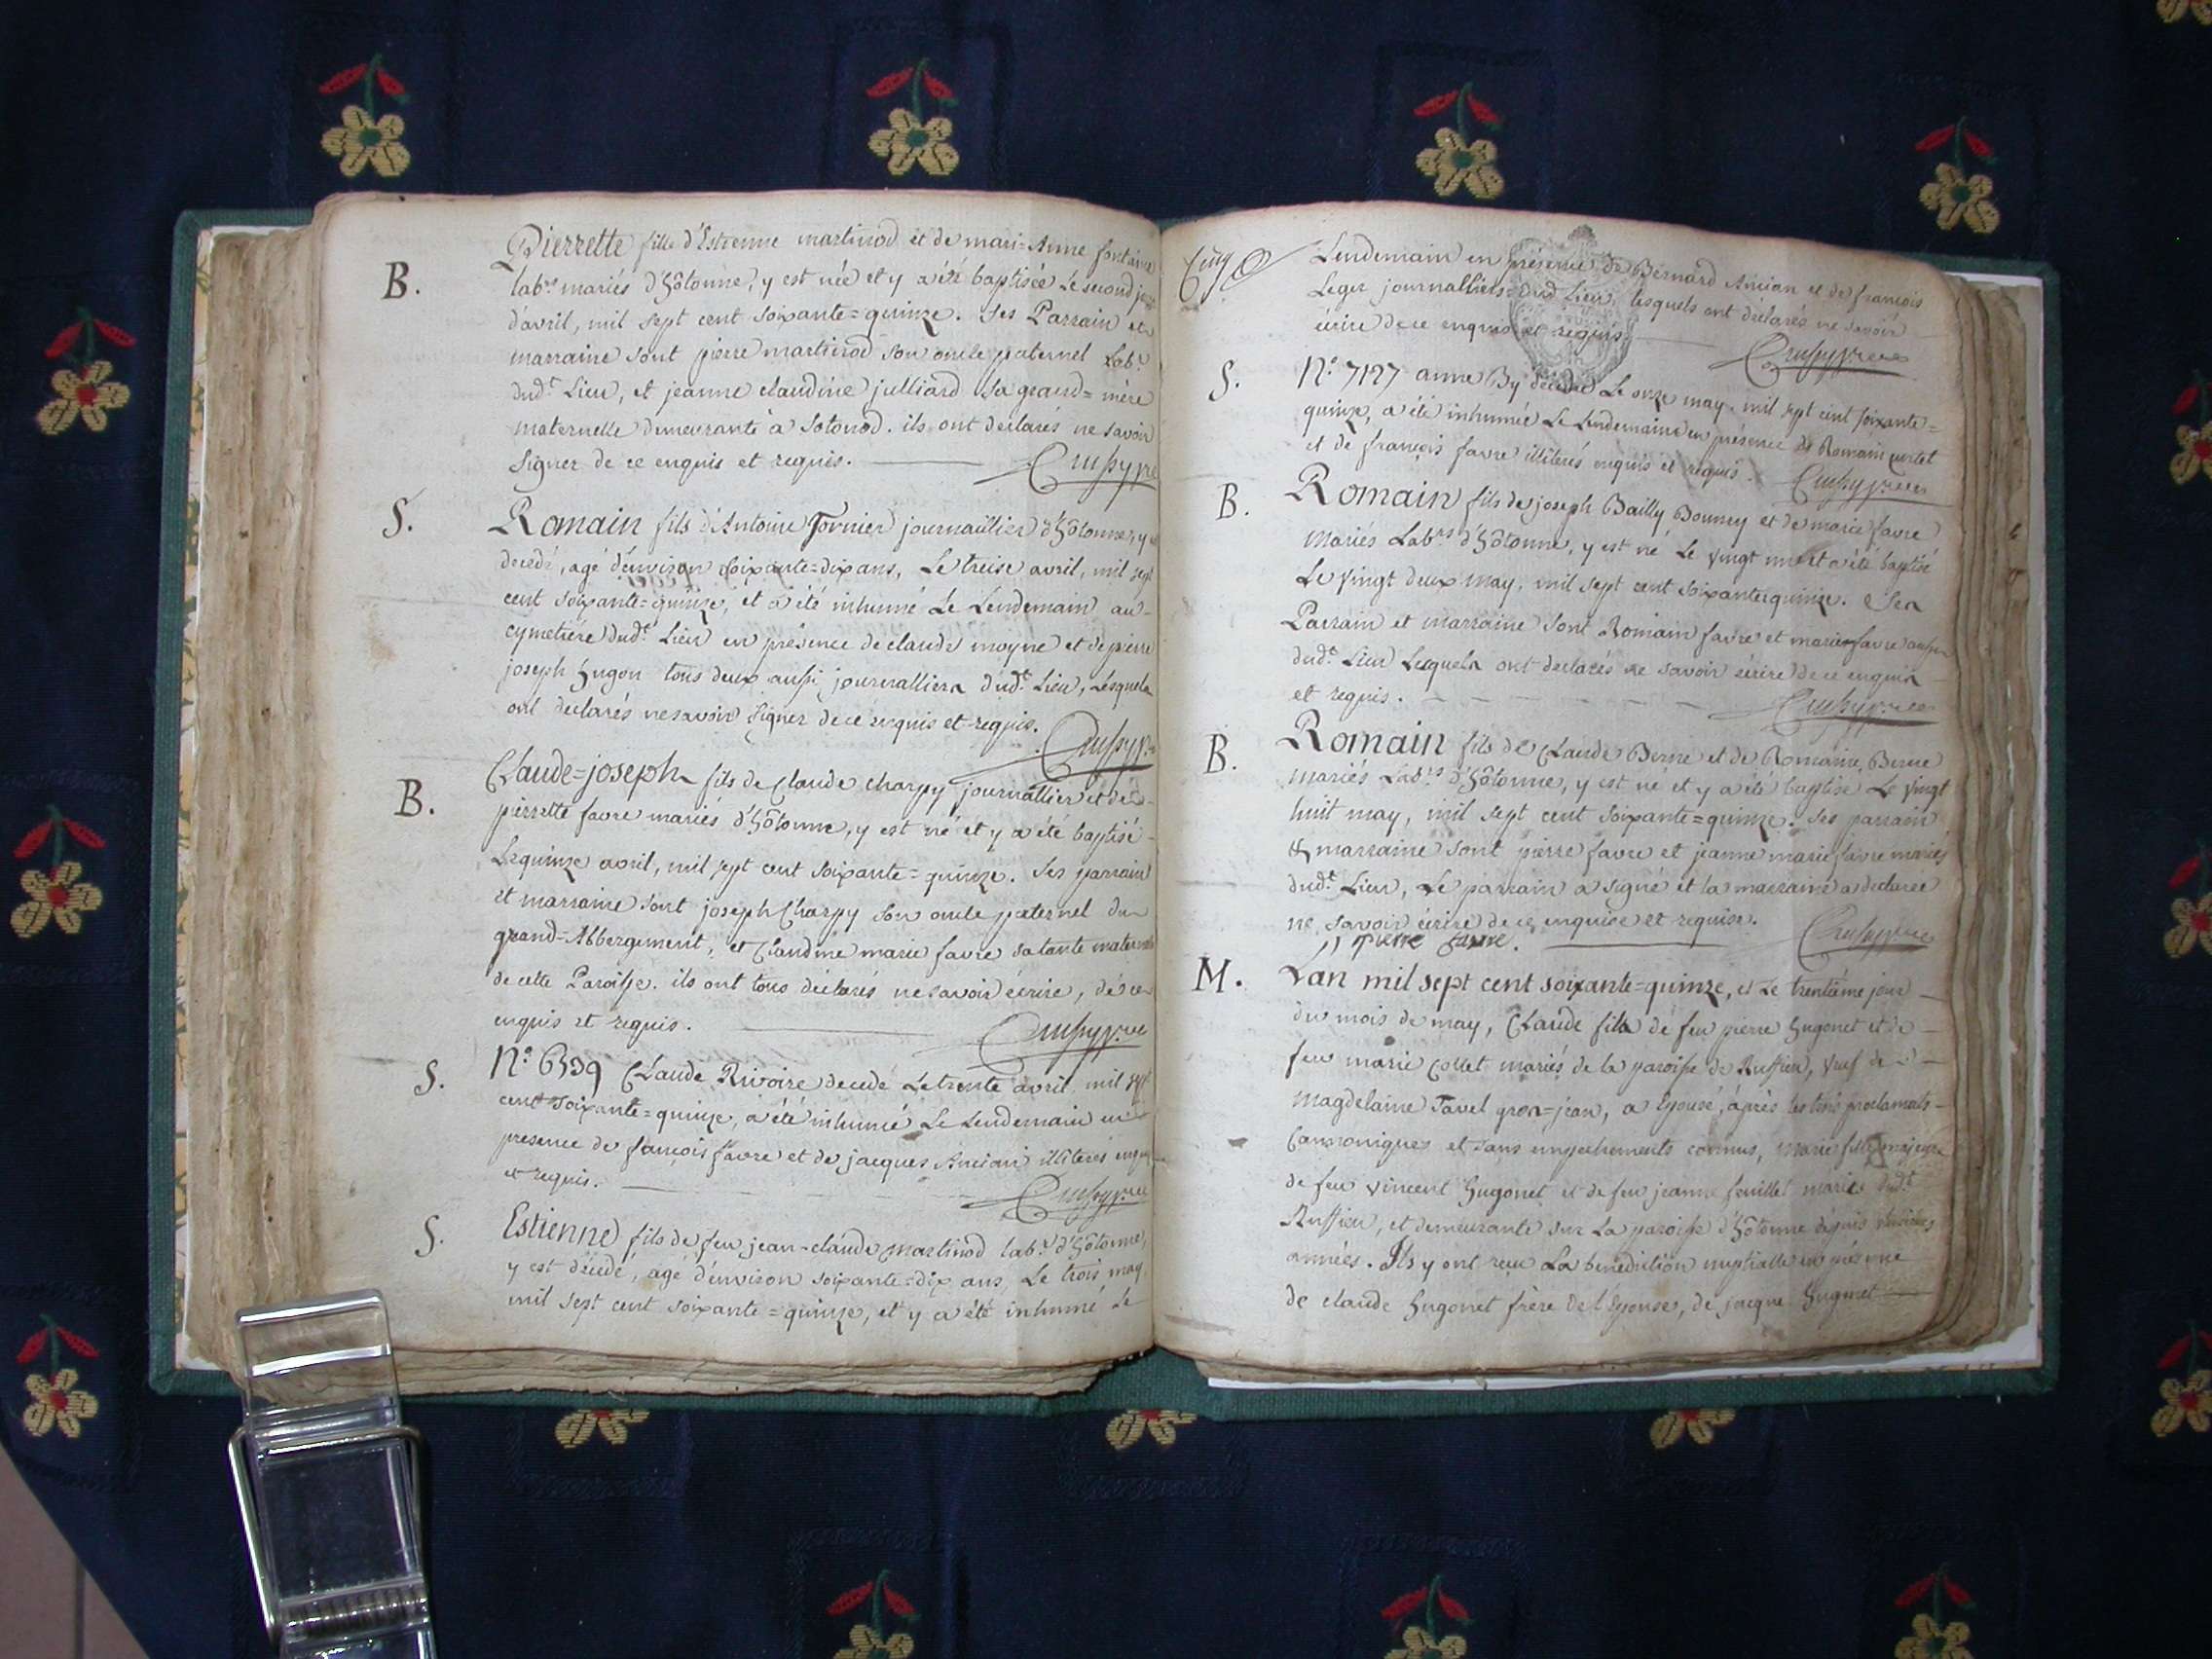 B.
Pierrette fille d'Estienne martinod et de mari=Anne fontaine
labrs mariés d'hôtonne, y est née et y a été baptisée Le second jour
d'avril, mil sept cent soixante=quinze. Ses Parrain et
marraine sont pierre martinod son oncle paternel Labr
dudt Lieu, et jeanne claudine julliard sa grand=mère
maternelle demeurante à Sotonod. ils ont déclarés ne savoir
signer de ce enquis et requis.
S.
Romain fils d'Antoine Tornier journaillier d'hôtonne, y est
decedé, agé d'environ soixante=dix ans, Le treise avril, mil sept
cent soixante=quinze, et a été inhumé Le Lendemain au
cymetiére dudt Lieu en présence de claude moyne et de pierre
joseph hugon tous deux aussi journalliers dudt Lieu, Lesquels
ont declarés ne savoir signer de ce enquis et requis.
B.
Claude=joseph fils de Claude charpy journallier et de
pierrette favre mariés d'hôtonne, y est né et y a été baptisé
Le quinze avril, mil sept cent soixante=quinze. Ses parrain
et marraine sont joseph Charpy son oncle paternel du
grand=Abbergement, et Claudine marie favre sa tante maternelle
de cette Paroisse. ils ont tous déclarés ne savoir écrire, de ce
enquis et requis.
S.
No. 6539 Claude Rivoire decedé Le trente avril mil sept
cent soixante=quinze, a été inhumé Le Lendemain en
presence de françois favre et de jacques Ancian illiterés enquis
et requis.
S.
Estienne fils de feu jean=claude martinod labr d'hôtonne,
y est décedé, agé d'environ soixante=dix ans, Le trois may
mil sept cent soixante=quinze, et y a été inhumé Le
Cinq
Lendemain en présence de Bernard Ancian et de françois
Leger journalliers dud Lieu, lesquels ont déclarés ne savoir
écrire de ce enquis et requis.
S.
No. 7127 anne By décédée Le onze may mil sept cent soixante=
quinze, a été inhumée Le Lendemain en présence de Romain curtet
et de françois favre illiterés enquis et requis.
B.
Romain fils de joseph Bailly Bonney et de marie favre
Mariés Labrs d'hôtonne, y est né Le vingt un et a été baptisé
Le vingt deux may, mil sept cent soixante quinze. Ses
Parrain et marraine sont Romain favre et marie favre aussi
dudt Lieu Lesquels ont declarés ne savoir écrire de ce enquis
et requis.
B.
Romain fils de Claude Berne et de Romaine Berne
mariés Labrs d'hôtonne, y est né et y a été baptisé Le vingt
huit may, mil sept cent soixante=quinze. Ses parrain
& marraine sont pierre favre et jeanne marie favre mariés
dudt Lieu, Le parrain a signé et la marraine a declarée
ne savoir écrire de ce enquise et requise.
pierre favre.
M.
L'an mil sept cent soixante=quinze, et Le trentième jour
du mois de may, Claude fils de feu pierre hugonet et de
feu marie collet mariés de la paroisse de Ruffieu, veuf de
Magdelaine Tavel gros=jean, a Epousé, après les trois proclamats
Cannoniques et sans empechements connus, marie fille majeure
de feu vincent hugonet et de feu jeanne feuillet mariés dudt
Ruffieu, et demeurante sur La paroisse d'hôtonne depuis plusieurs
années. Ils y ont reçu La bénédiction nuptialle en présence
de claude hugonet frère de l'Epouse, de jacque hugonet